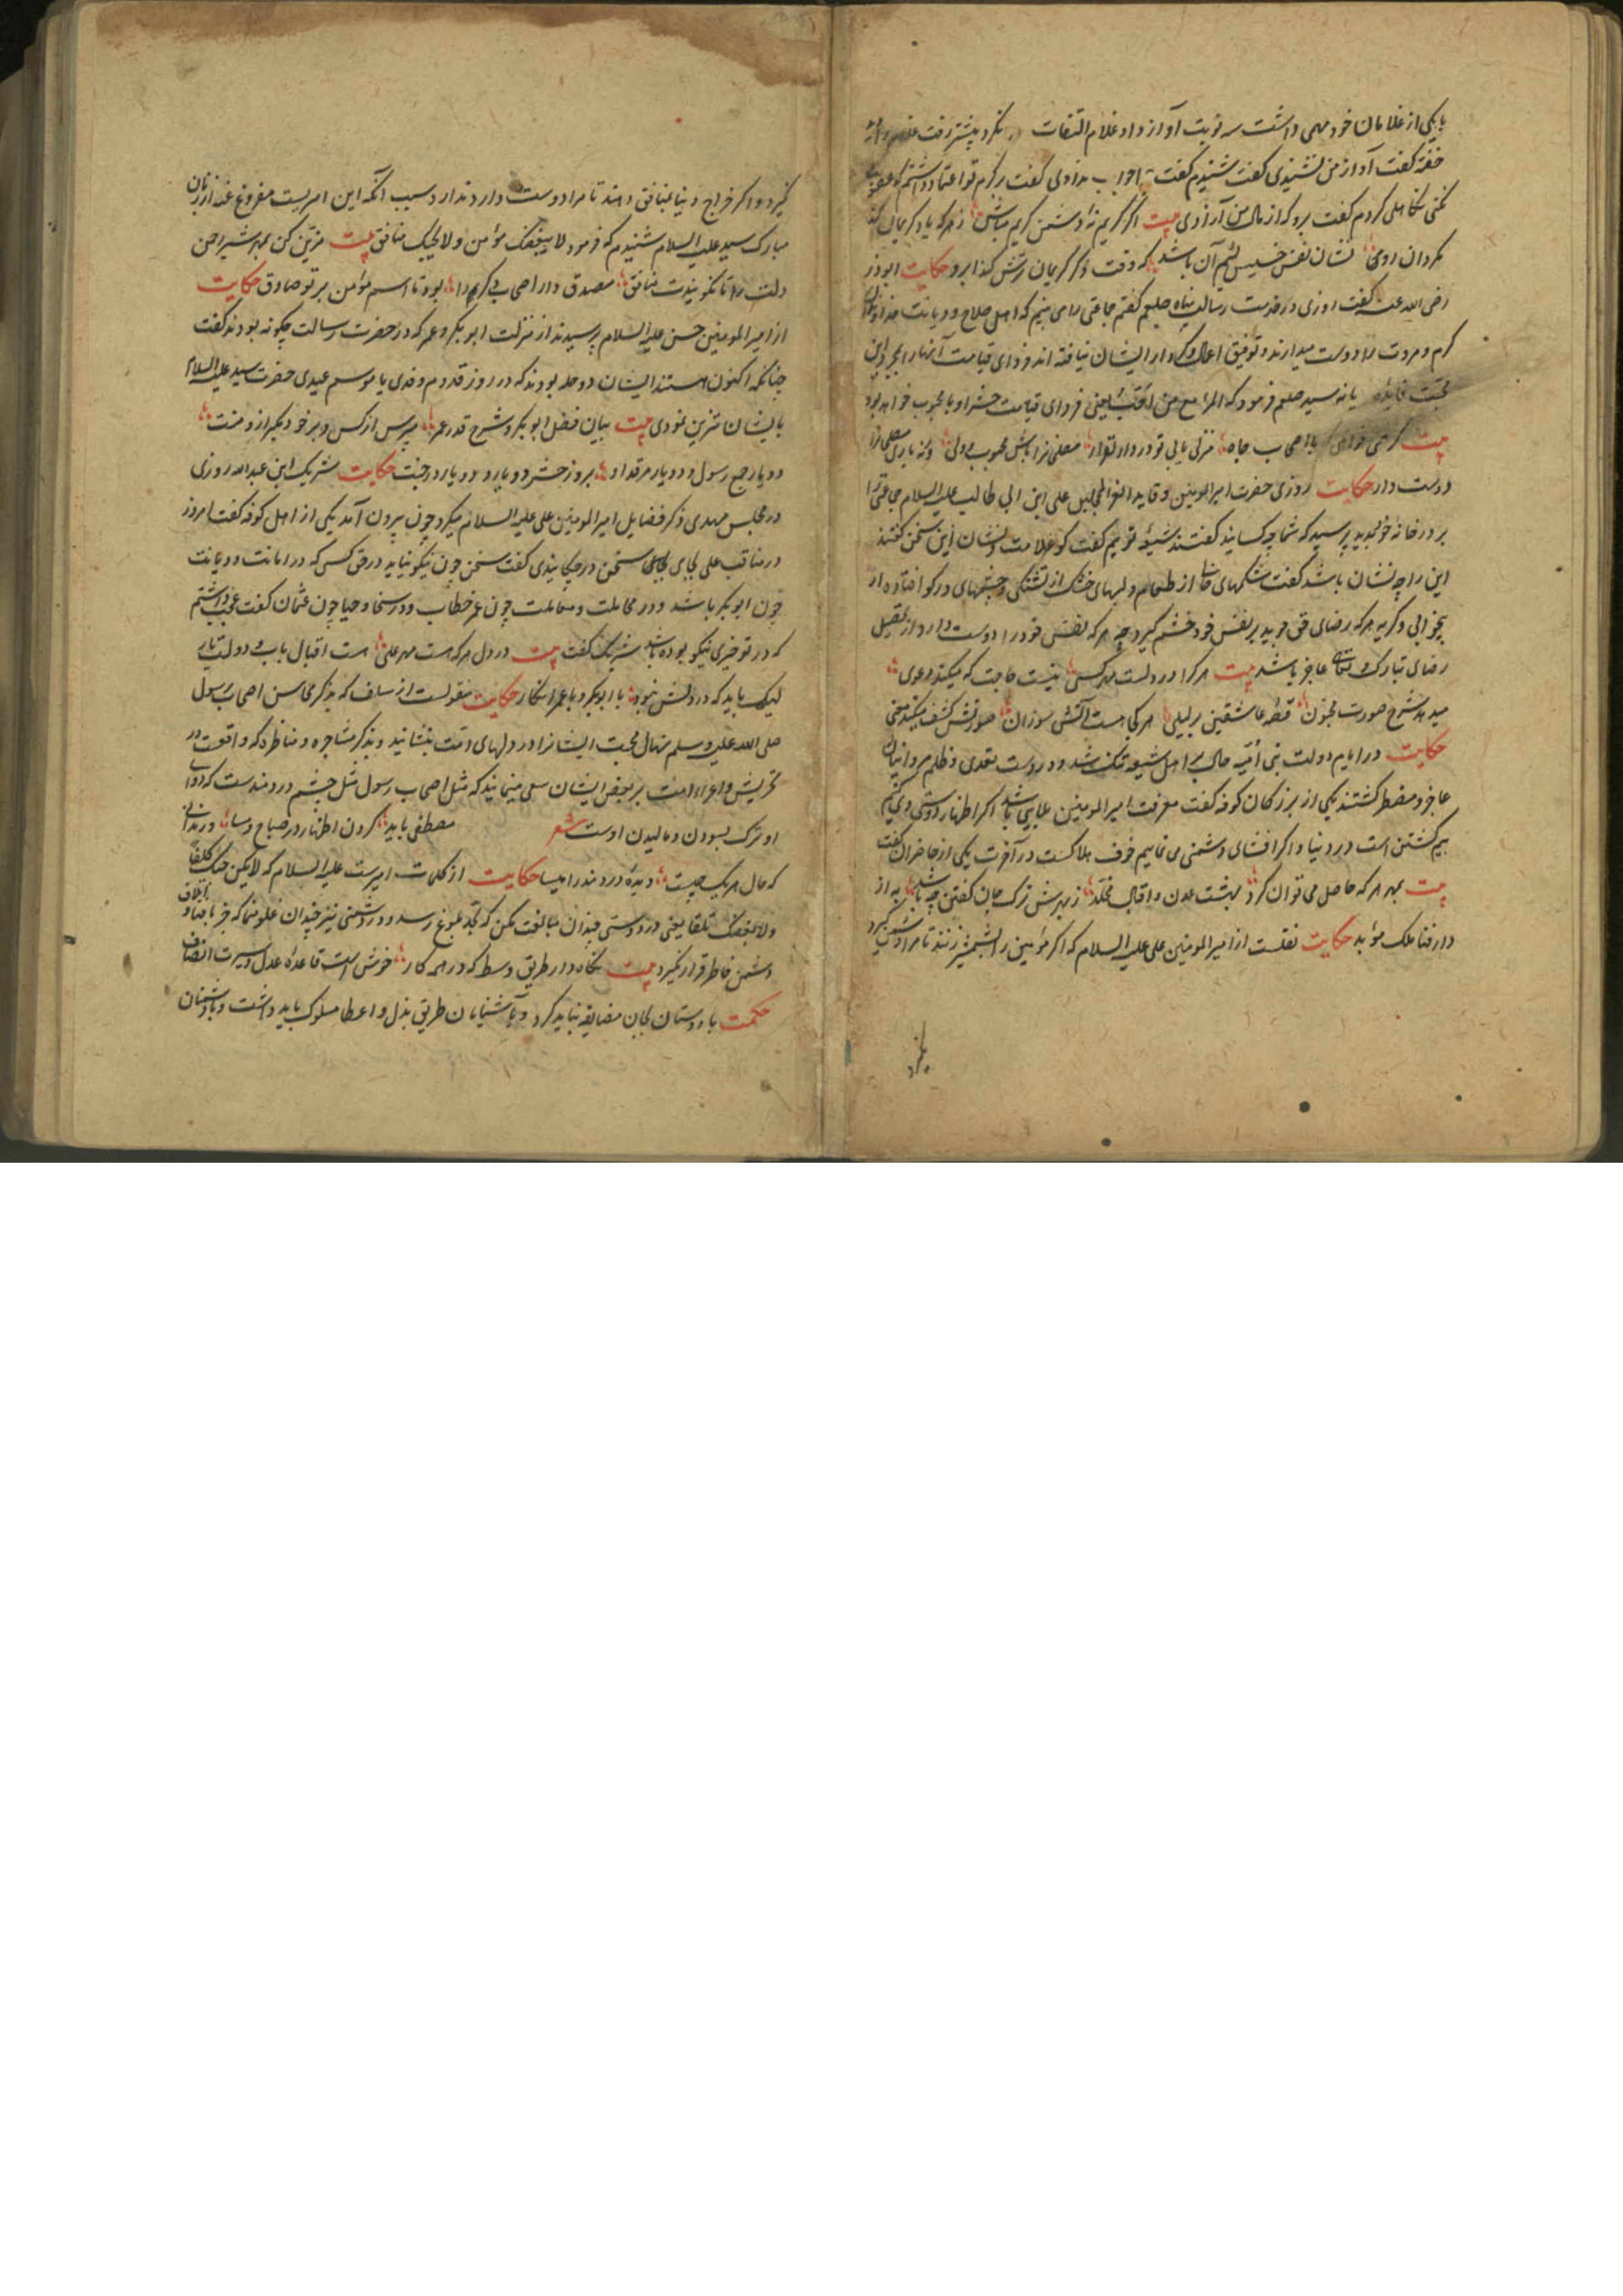 با یکی از غلامان خود مهمی داشت سه نوبت آواز داد غلام التفات نکرد پیشتر رفت غلام را
خفته گفت آواز من نشنیدی گفت شنیدم گفت جواب ندادی گفت بر کرم تو اعتماد داشتم که عقوبت
نکنی تکاهلی کردم گفت برو که از مال من آزادی بیت اگر کریم نهٔ دشمن کریم مباش هر که یاد کریمان کند
مگردان روی نشان نفس خسیس لئیم آن باشد که وقت ذکر کریمان ترش کند ابرو حکایت ابوذر
رضی الله عنه گفت روزی در خدمت رسالت پناه صلعم گفتم جماعتی را می بینم که اهل صلاح و دیانت
کرم و مروت را دوست میدارند و توفیق اعمال و کردار ایشان نیافته اند فردای قیامت آنها را بجز این
محبت فایده یا نه سید صلعم فرمود که المرء مع من احب یعنی فردای قیامت حشر او با محبوب خواهد بود
بیت گر همی خواهی که با اصحاب جاه منزلی یابی تو در دار القرار
دوست دار حکایت روزی حضرت امیرالمومنین و قاید الغر المحجلین علی ابن ابی طالب علیه السلام جماعتی را
بر در خانه خود دید پرسید که شما چه کسانید گفتند شیعهٔ توئیم گفت کو علامت و نشان این سخن گفتند
این را چه نشان باشد گفت شکمهای خالی از طعام و لبهای خشک از تشنگی و چشمهای در کو افتاده از
بیخوابی و گریه هر که رضای حق جوید بر نفس خود خشم گیرد چه هر که نفس خود را دوست دارد از تحصیل
رضای تبارک و تعالی عاجز باشد بیت هر کرا در دلست مهر کسی نیست حاجت که میکند دعوی
میدهد شرح صورت مجنون قصهٔ عاشقیش بر لیلی هر کجا هست آتش سوزان صورتش کشف میکند معنی
حکایت در ایام دولت بنی امیه حال بر اهل شیعه تنگ شد و در دست تعدی و ظلم مروانیان
عاجز و مضطر گشتند یکی از بزرگان کوفه گفت معرفت امیرالمومنین علی باشد اگر اظهار دوستی وی کنیم
بیم کشتن است در دنیا و اگر افشای دشمنی می نماییم خوف هلاکست در آخرت یکی از حاضران گفت
بیت بمهر هر که حاصل می توان کرد بهشت عدن و اقبال مخلد ز مهرش ترک جان گفتن چه باشد به از
دار فنا ملک مؤبد حکایت نقلست از امیرالمومنین علی علیه السلام که اگر مؤمنین را بشمشیر زنند تا مرا دشمن گیرد
گیرد و اگر خراج دنیا بمنافق دهند تا مرا دوست دارد ندارد سبب آنکه این امریست مفروغ عنه از زبان
مبارک سید علیه السلام شنیدم که فرمود لا یبغضک مؤمن و لا یحبک منافق بیت مزین کن بمهر شیر حق
دلت را تا نگویندت منافق مصدق دار اصحاب کرم را بود تا اسم مؤمن بر تو صادق حکایت
از امیرالمومنین حسن علیه السلام پرسیدند از منزلت ابوبکر و عمر که در حضرت رسالت چگونه بودند گفت
چنانکه اکنون هستند ایشان دو حله بودند که در روز قدوم وفدی یا موسم عیدی حضرت سید علیه السلام
بایشان تزین نمودی بیت بیان فضل ابوبکر و شرح قدر عمر بپرس از کس و بر خود مگیر از و منت
دو یار جمع رسول و دو یار مرقد او بروز حشر دو یار و دو یار در جنت حکایت شریک ابن عبدالله روزی
در مجلس مهدی ذکر فضایل امیرالمومنین علی علیه السلام میکرد چون بیرون آمد یکی از اهل کوفه گفت امروز
در مناقب علی بجای سخن در چکانیدی گفت سخن چون نیکو نیاید در حق کسی که در امانت و دیانت
چون ابوبکر باشد و در معاملت چون عمر خطاب و در سخا و حیا چون عثمان گفت عجب داشتم
که در تو خیری نیکو بوده باشد شریک گفت بیت در دل هر که هست مهر علی هست اقبال یاب و دولت یار
لیک باید که در دلش نبود با ابوبکر و با عمر انکار حکایت منقولست از سلف که بذکر محاسن اصحاب رسول
صلی الله علیه وسلم نهال محبت ایشان را در دلهای امت بنشانید و بذکر مشاجره و مناظره که واقعست در
تحریش و اغراء امت بر بغض ایشان سعی منمایید که مثل اصحاب رسول مثل چشم دردمندست که دوای
او ترک بسودن و مالیدن اوست شعر مصطفی باید کردن اظهار در صباح و مسا
که حال هر یک چیست دیدهٔ دردمند را میسا حکایت از کلمات امیرست علیه السلام که لا یکن حبک کلفا
ولا بغضک تلفا یعنی در دوستی چندان مبالغت مکن که بحد بلوغ رسد و در دشمنی نیز چندان غلو منما که جز باتلاف
دشمن خاطر قرار نگیرد بیت نگاه دار طریق وسط که در همه کار خوش است قاعدهٔ عدل و سیرت انصاف
حکمت با دوستان بجان مضایقه نباید کرد و با آشنایان طریق بذل و اعطا مسلوک باید داشت و با دشمنان